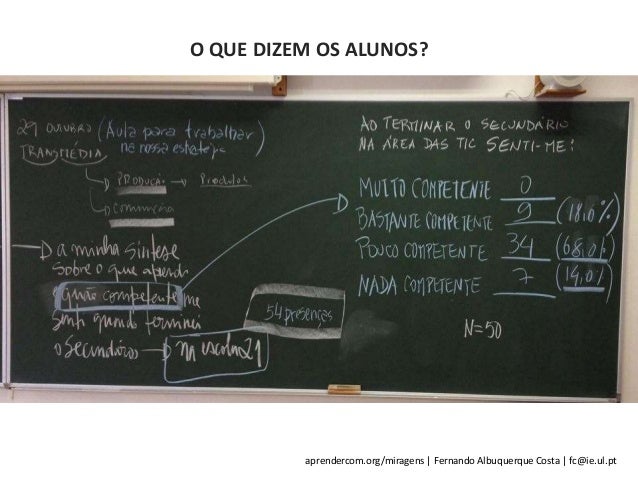 O QUE DIZEM OS ALUNOS?
29 OUTUBRO (Aula para trabalhar
TRANSMÉDIA na nossa estratégia)
PRODUÇÃO → Produtos
Comunicação
a minha síntese
sobre o que aprendi
quão competente me
senti quando terminei
o secundário → na escola 21
54 presenças
AO TERMINAR O SECUNDÁRIO
NA ÁREA DAS TIC SENTI-ME:
MUITO COMPETENTE 0
BASTANTE COMPETENTE 9 (18,0%)
POUCO COMPETENTE 34 (68,0%)
NADA COMPETENTE 7 (14,0%)
N=50
aprendercom.org/miragens | Fernando Albuquerque Costa | fc@ie.ul.pt